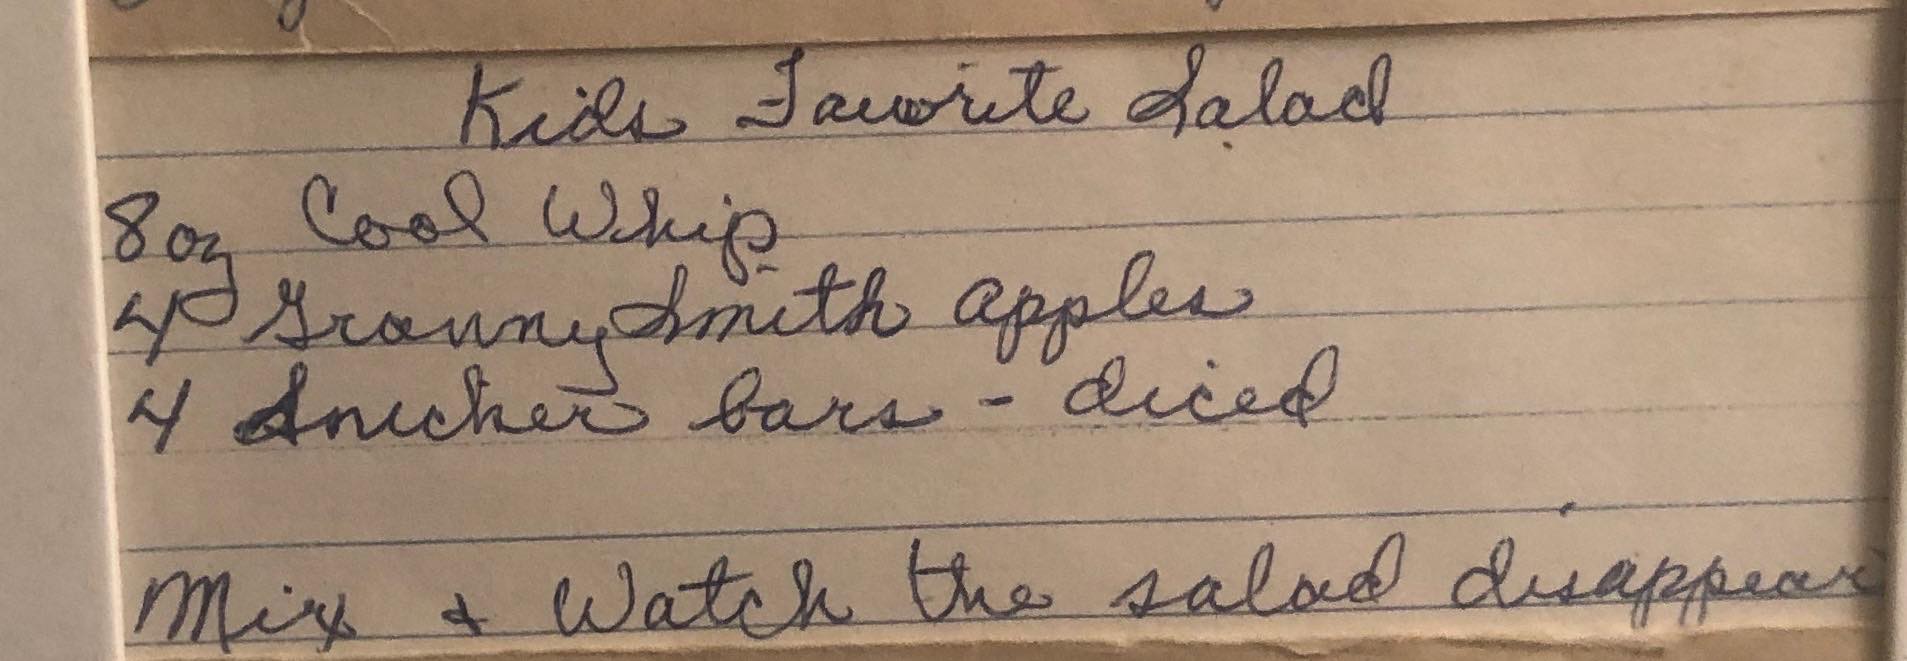 Kids Favorite Salad
8 oz Cool Whip
4 Granny Smith apples
4 Snicker bars - diced
Mix & Watch the salad disappear